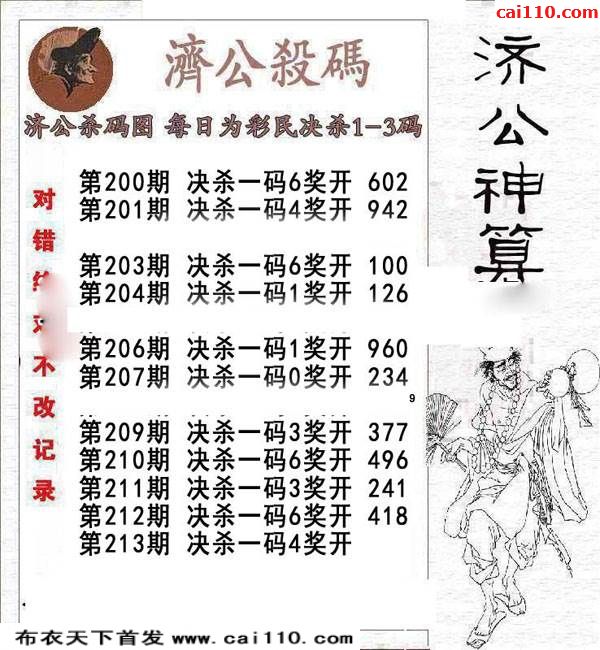 cai110.com
濟公殺碼
济公杀码图 每日为彩民决杀1-3码
济公神算
对错绝对不改记录
第200期 决杀一码6奖开 602
第201期 决杀一码4奖开 942
第203期 决杀一码6奖开 100
第204期 决杀一码1奖开 126
第206期 决杀一码1奖开 960
第207期 决杀一码0奖开 234
9
第209期 决杀一码3奖开 377
第210期 决杀一码6奖开 496
第211期 决杀一码3奖开 241
第212期 决杀一码6奖开 418
第213期 决杀一码4奖开
布衣天下首发 www.cai110.com